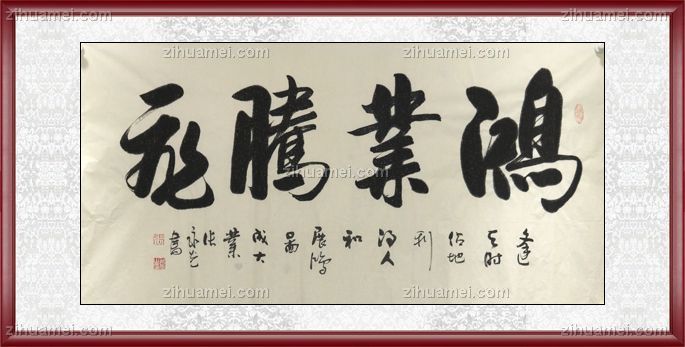 鴻業騰飛
逢天时
占地
利
得人
和
展鸿
图
成大
業
张
永茂
書
zihuamei.com
zihuamei.com
zihuamei.com
zihuamei.com
zihuamei.com
zihuamei.com
zihuamei.com
zihuamei.com
zihuamei.com
zihuamei.com